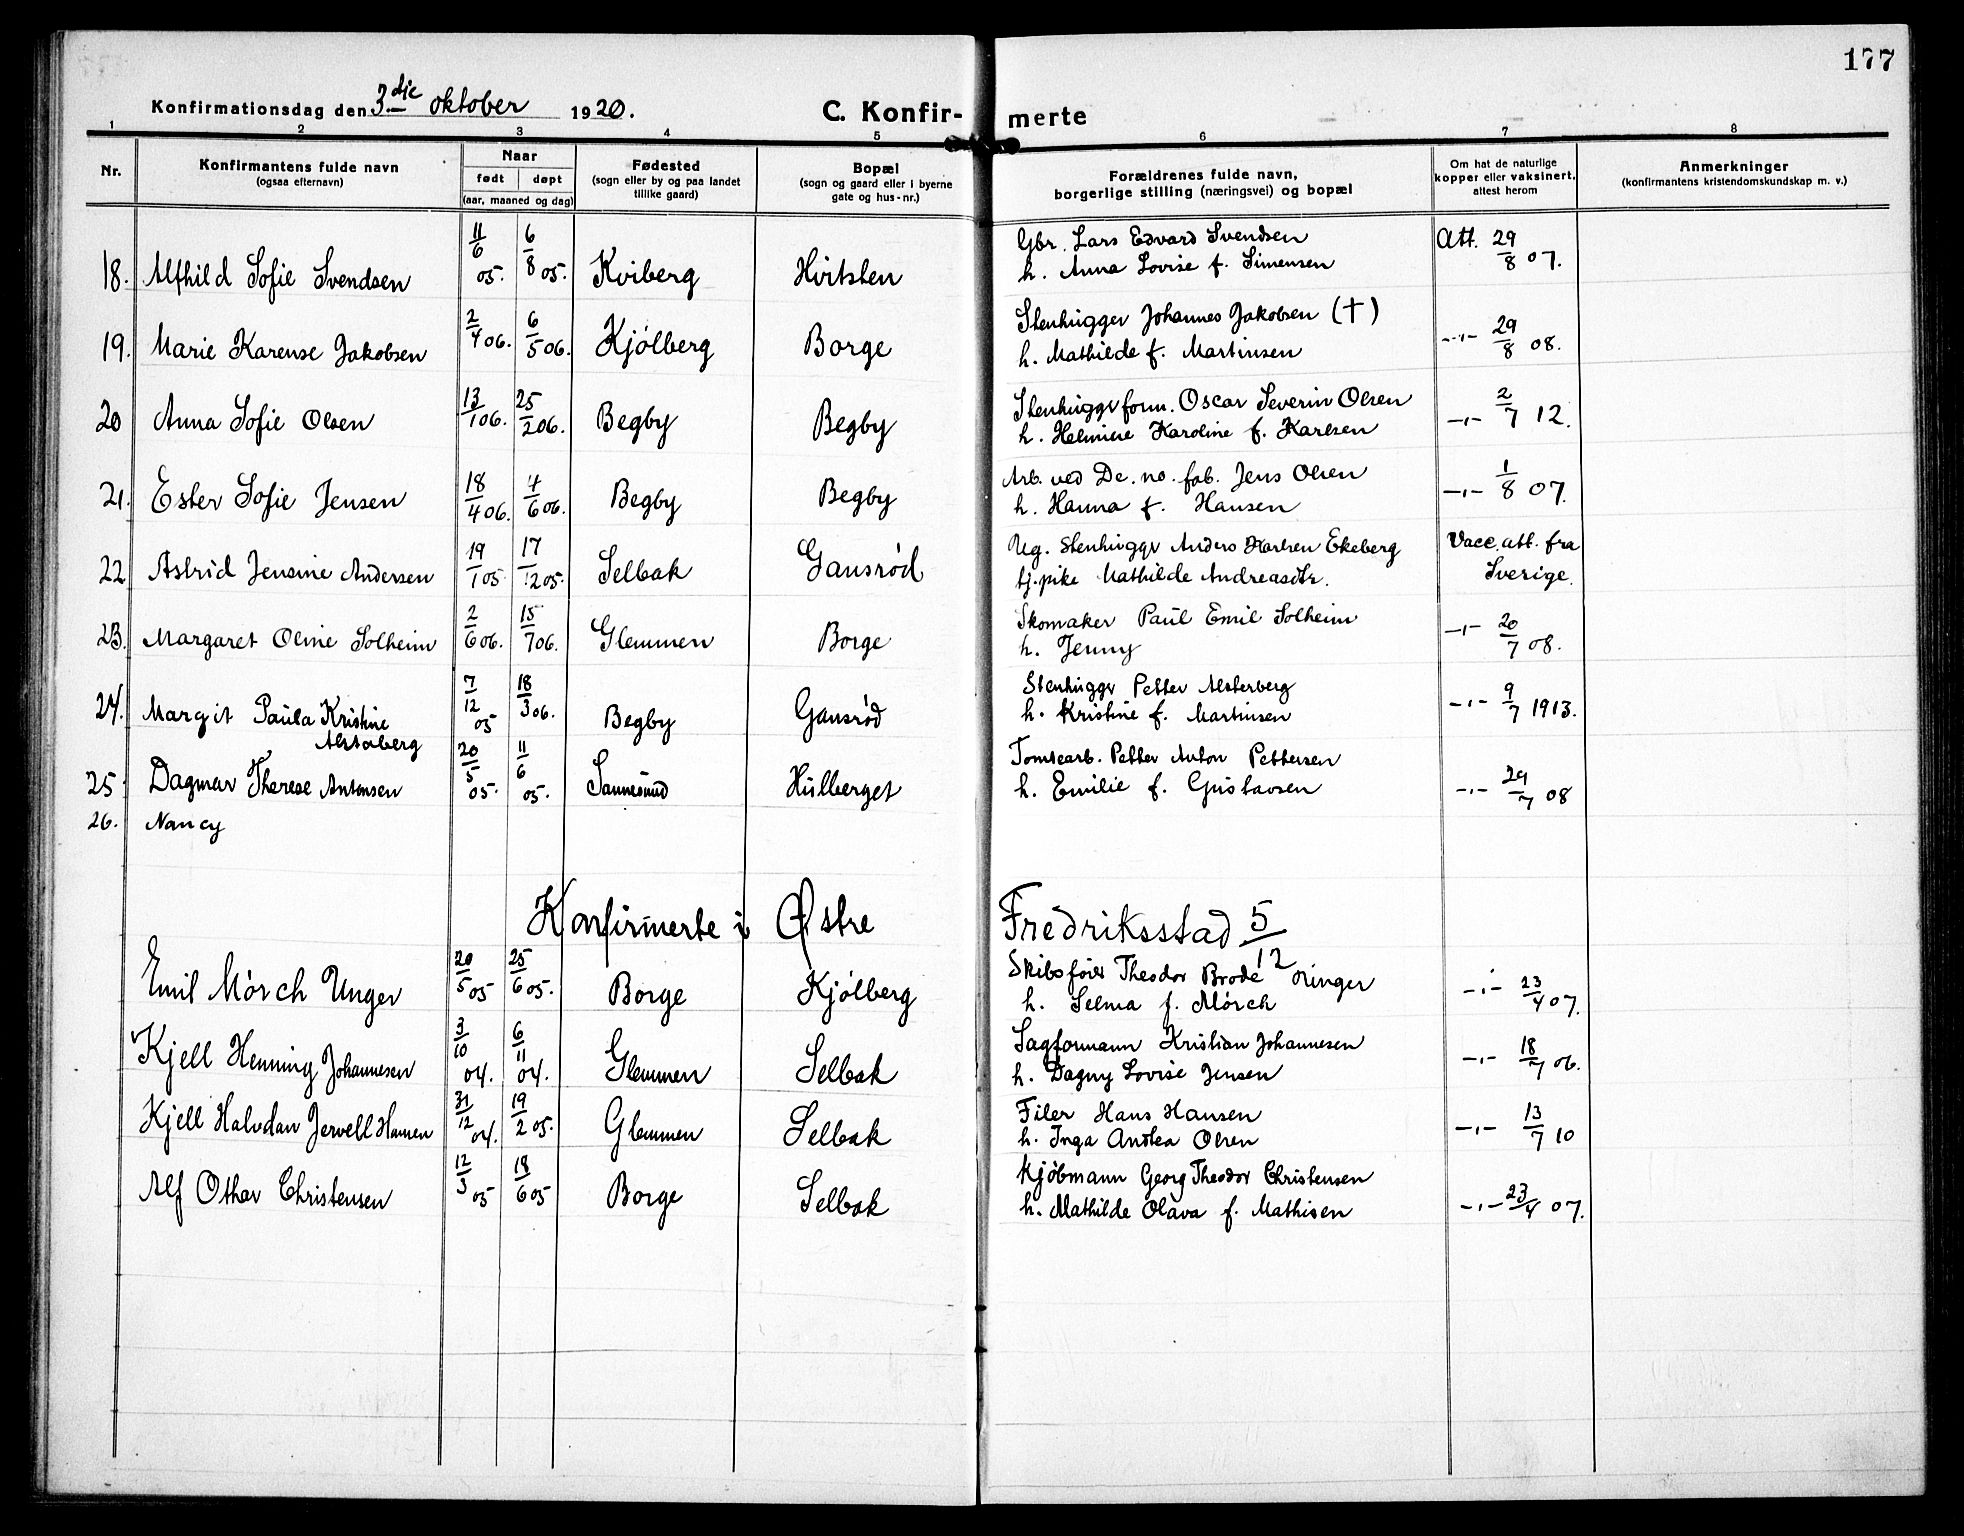 177
Konfirmationsdag den 3die oktober 1920. C. Konfir- merte
1 2 3 4 5 6 7 8
Nr. Konfirmantens fulde navn (ogsaa efternavn) Naar født døpt (aar, maaned og dag) Fødested (sogn eller by og paa landet tillike gaard) Bopæl (sogn og gaard eller i byerne gate og hus-nr.) Forældrenes fulde navn, borgerlige stilling (næringsvei) og bopæl Om hat de naturlige kopper eller vaksinert, attest herom Anmerkninger (konfirmantens kristendomskundskap m. v.)
18. Alfhild Sofie Svendsen 11/6 05. 6/8 05. Kviberg Hvitsten Gbr. Lars Edvard Svendsen Att. 29/8 07.
h. Anna Lovise f. Simensen
19. Marie Karense Jakobsen 2/4 06. 6/5 06. Kjølberg Borge Stenhugger Johannes Jakobsen (†) -"- 29/8 08.
h. Mathilde f. Martinsen
20 Anna Sofie Olsen 13/1 06. 25/2 06. Begby Begby Stenhuggerform. Oscar Severin Olsen -"- 2/7 12.
h. Karoline f. Karlsen
21. Ester Sofie Jensen 18/4 06. 4/6 06. Begby Begby Arb. ved De. no. fab. Jens Olsen -"- 1/8 07.
h. Hanna f. Hansen
22 Astrid Jensine Andersen 19/1 05 17/12 05. Selbak Gansrød Ug. Stenhugger Anders Karlsen Ekeberg Vacc. att. fra
tj.pike Mathilde Andreasdtr. Sverige.
23. Margaret Oline Solheim 2/6 06. 15/7 06. Glemmen Borge Skomaker Paul Emil Solheim -"- 20/7 08.
h. Jenny
24. Margit Paula Kristine 7/12 05 18/3 06. Begby Gansrød Stenhugger Petter Alsterberg -"- 9/7 1913.
Alsterberg h. Kristine f. Martinsen
25 Dagmar Therese Antonsen 20/5 05. 11/6 05. Sannesund Hulberget Tomtearb. Petter Anton Pettersen -"- 29/7 08
h. Emilie f. Gustavsen
26. Nancy
Konfirmerte i Østre Fredriksstad 5/12
Emil Mørch Unger 20/5 05 25/6 05. Borge Kjølberg Skibsfører Theodor Brode Unger -"- 23/4 07.
h. Selma f. Mørch
Kjell Henning Johannesen 3/10 04. 6/11 04. Glemmen Selbak Sagformann Kristian Johannesen -"- 18/7 06.
h. Dagny Lovise Jensen
Kjell Halvdan Jervell Hansen 31/12 04. 19/2 05. Glemmen Selbak Filer Hans Hansen -"- 13/7 10
h. Inga Andrea Olsen
Alf Othar Christensen 12/3 05 18/6 05 Borge Selbak Kjøbmann Georg Theodor Christensen -"- 23/4 07.
h. Mathilde Olava f. Mathisen